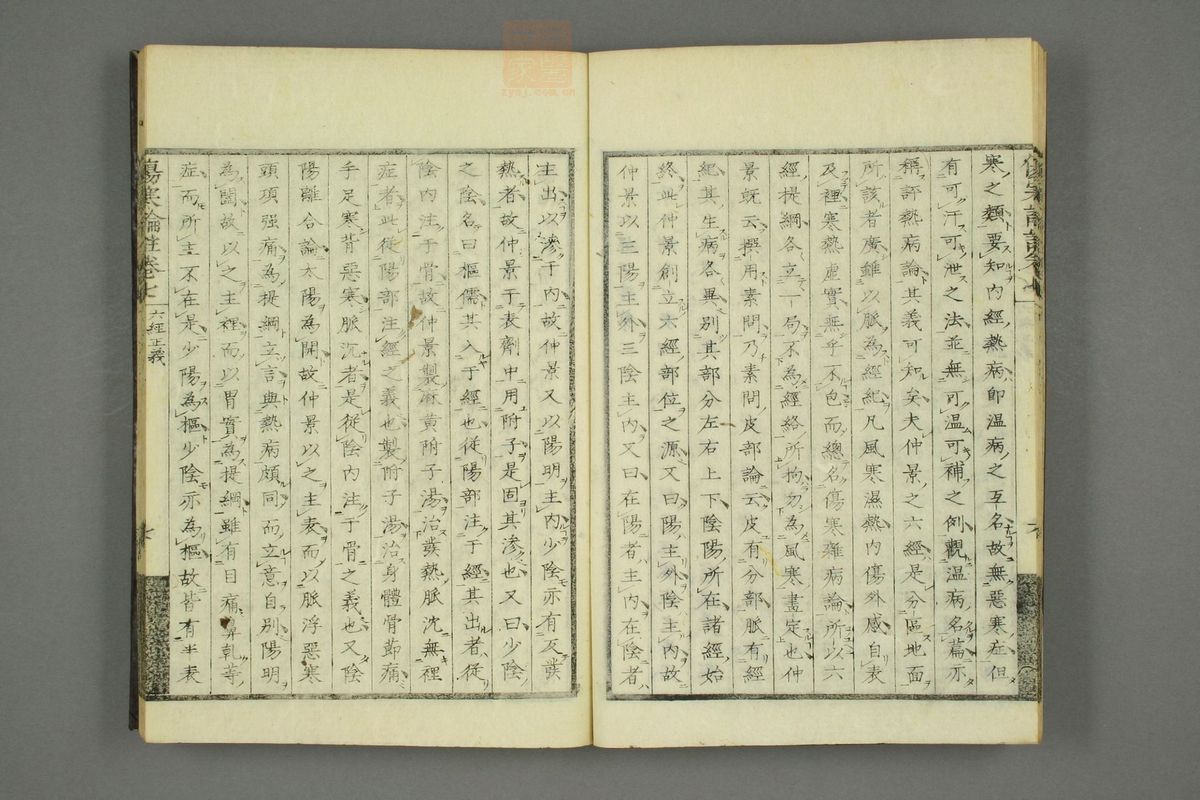 寒之類要知內經熱病即温病之互名故無惡寒症但
有可汗可泄之法並無可温可補之例觀温病名篇亦
稱評熱病論其義可知矣夫仲景之六經是分區地面
所該者廣雖以脈為經紀凡風寒濕熱內傷外感自表
及裡寒熱虛實無乎不包而總名傷寒雜病論所以六
經提綱各立一局不為經絡所拘勿為風寒畫定也仲
景既云撰用素問乃素問皮部論云皮有分部脈有經
紀其生病各異別其部分左右上下陰陽所在諸經始
終此仲景創立六經部位之源又曰陽主外陰主內故
仲景以三陽主外三陰主內又曰在陽者主內在陰者
主出以滲于內故仲景又以陽明主內少陰亦有反發
熱者故仲景于表劑中用附子是固其滲也又曰少陰
之陰名曰樞儒其入于經也從陽部注于經其出者從
陰內注于骨故仲景製麻黃附子湯治發熱脈沉無裡
症者此從陽部注經之義也製附子湯治身體骨節痛
手足寒背惡寒脈沉者是從陰內注于骨之義也又陰
陽離合論太陽為開故仲景以之主表而以脈浮惡寒
頭項强痛為提綱立言與熱病頗同而立意自別陽明
為闔故以之主裡而以胃實為提綱雖有目痛鼻乾等
症而所主不在是少陽為樞少陰亦為樞故皆有半表
傷寒論註卷七
六經正義
zysj.com.cn